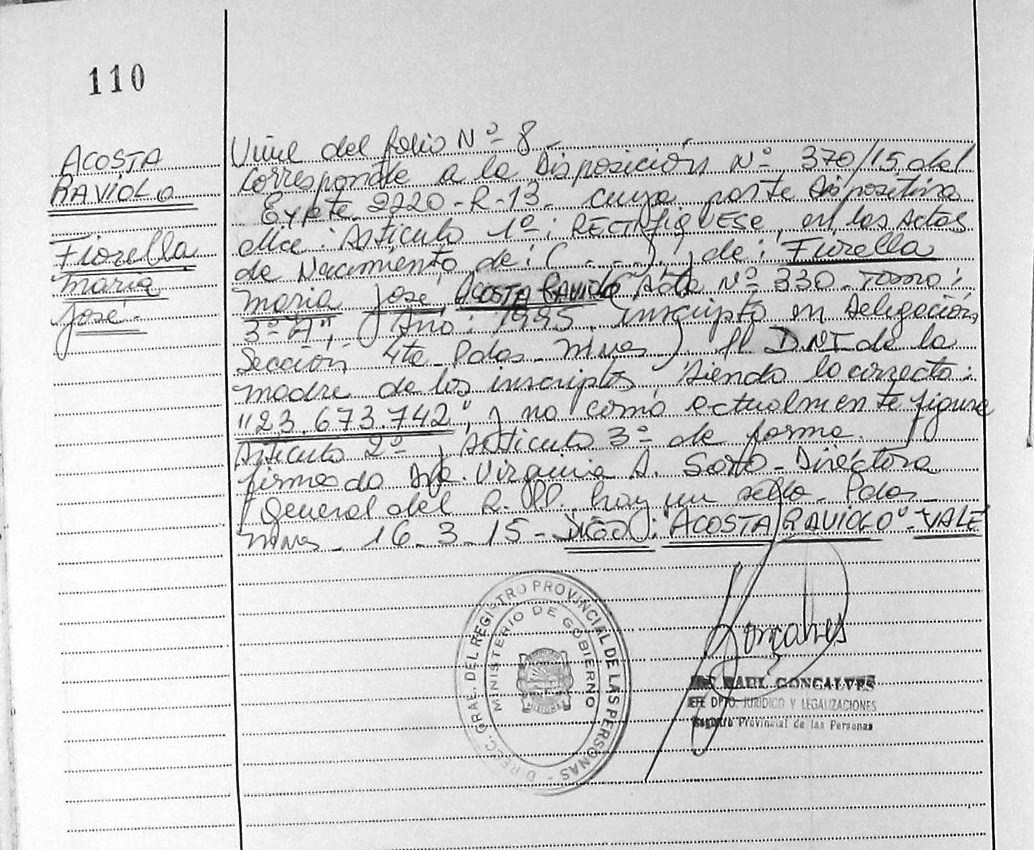 110
ACOSTA
RAVIOLO
Fiorella
maria
José.
Viene del folio Nº 8
Corresponde a la Disposición Nº 370/15 del
Expte. 2220-R-13. cuya parte Dispositiva
dice: Artículo 1º: RECTIFIQUESE, en las Actas
de Nacimiento de: (......), de: Fiorella
maria José ACOSTA RAVIOLO Acta Nº 330. Tomo:
3º "A", Año: 1995. Inscripta en Delegación
Sección 4ta Pdas. mnes) El DNI de la
madre de los inscriptos siendo lo correcto:
"23.673.742", y no como actualmente figura
Artículo 2º y Artículo 3º de forma.
firmado Virginia A. Soto - Directora
General del R.PP. hay un sello. Pdas
mnes. 16.3.15 - "ACOSTA RAVIOLO" - VALE
DIRECC. GRAL. DEL REGISTRO PROVINCIAL DE LAS PERSONAS
MINISTERIO DE GOBIERNO
Goncalves
RAUL GONCALVES
JEFE DPTO. JURIDICO Y LEGALIZACIONES
Registro Provincial de las Personas